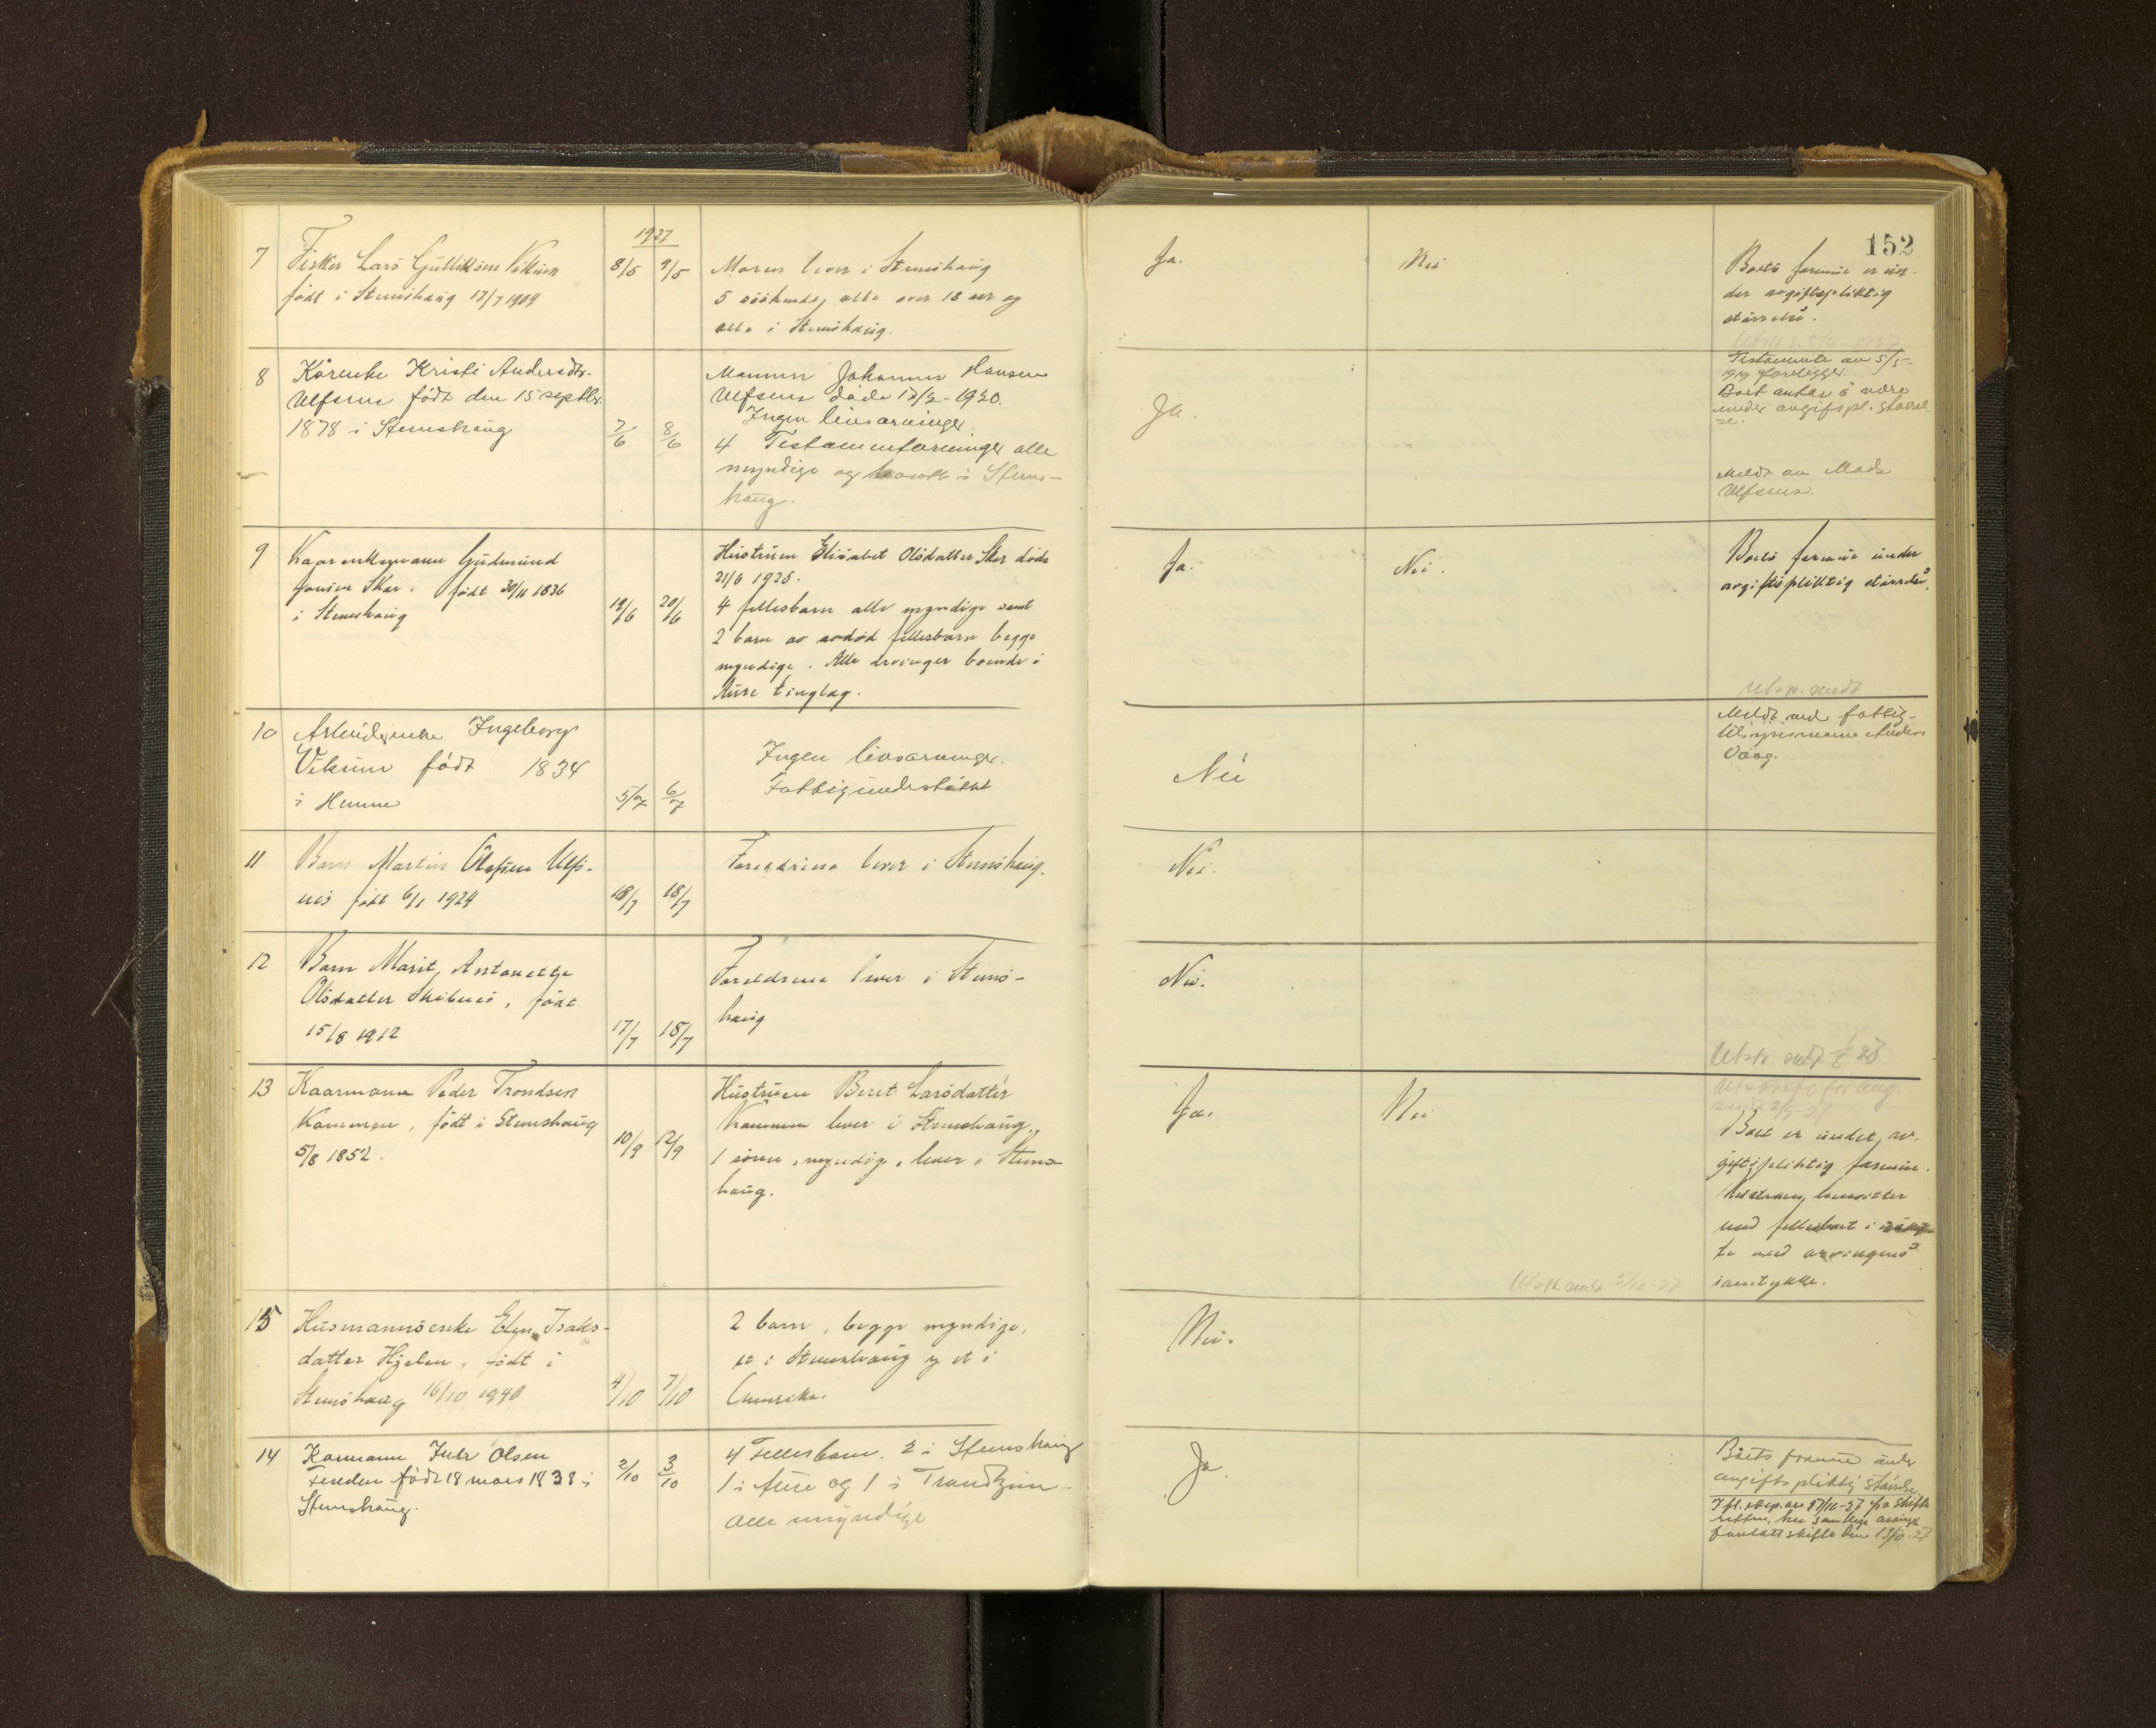 152
1927
7
Fisker Lars Gulliksen Viksun
født i Stemshaug 17/7 1904
8/5 9/5
Moren lever i Stemshaug
5 søskende, alle over 18 aar og
alle i Stemshaug.
Ja.
Nei
Boets formue er un-
der avgiftspliktig
størrelse.
8
Kårenke Kristi Andersdtr.
Ulfsnes født den 15 septbr.
1878 i Stemshaug
7/6 8/6
Mannen Johannes Hansen
Ulfsnes døde 17/2-1920.
Ingen livsarvinger
4 Testamentarvinger alle
myndige og boende i Stems-
haug.
Ja.
Testamente av 5/5-
1919 foreligger.
Boet antas å være
under avgifspl. størrel-
se.
Meldt av Mads
Ulfsnes.
9
Kaarenkemann Gudmund
Jonsen Skar. født 30/11 1836
i Stemshaug
19/6 20/6
Hustruen Elisabet Olsdatter Skar døde
21/6 1925.
4 fellesbarn alle myndige samt
2 barn av avdød fellesbarn begge
myndige. Alle arvinger boende i
Aure tinglag.
Ja.
Nei.
Boets formue under
avgiftspliktig størrelse.
Utsp. sendt
10
Arbeiderenke Ingeborg
Viksun født 1834
i Hemne
5/7 6/7
Ingen livsarvinger.
Fattigunderstøttet
Nei
Meldt ved fattig-
tilsynsmann Anders
Vaag.
11
Barn Martin Olufsen Ulfs-
nes født 6/1 1924
18/7 18/7
Foreldrene lever i Stemshaug.
Nei.
12
Barn Marit Antonette
Olsdatter Skibnes, født
15/8 1912
17/7 18/7
Foreldrene lever i Stems-
haug
Nei.
Utskr. sendt 1/8 27
13
Kaarmann Peder Trondsen
Kammen, født i Stemshaug
5/8 1852.
10/9 12/9
Hustruen Beret Larsdatter
Krammen lever i Stemshaug.
1 sønn, myndig, lever i Stems-
haug.
Ja.
Nei
Utskrift for aug.
Boet er under av-
giftspliktig formue.
Hustruen hensitter
med fellesboet i
te med arvingens
samtykke.
15
Husmannsenke Elen Isaks-
datter Hjelen, født i
Stemshaug 16/10 1940
4/10 7/10
2 barn, begge myndige,
et i Stemshaug og et i
Amerika.
Nei.
14
Karmann Juls Olsen
født 18 mars 1838 i
Stemshaug.
2/10 3/10
4 Fellesbarn. 2 i Stemshaug
1 i Aure og 1 i Trondhjem
alle myndige
Ja.
Boets formue under
avgiftspliktig størrelse